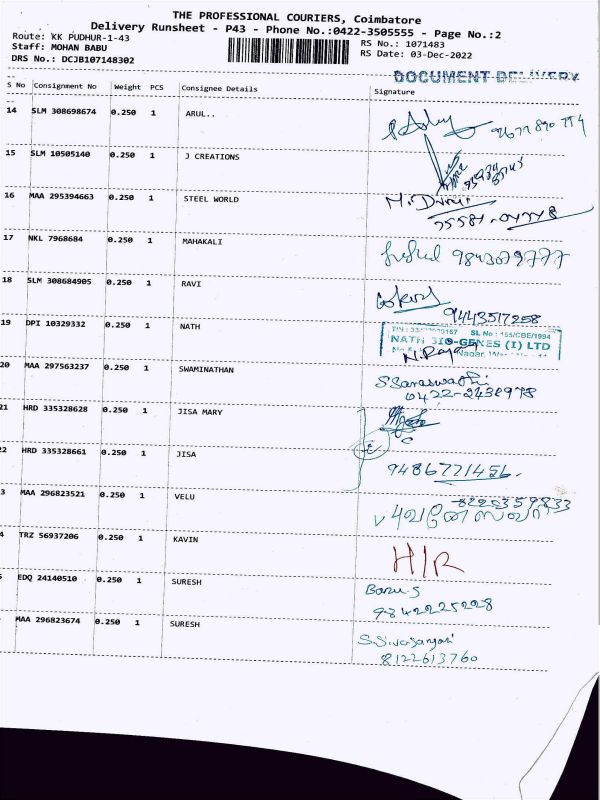 THE PROFESSIONAL COURIERS, Coimbatore
Delivery Runsheet - P43 - Phone No.:0422-3505555 - Page No.:2
Route: KK PUDHUR-1-43
RS No.: 1071483
Staff: MOHAN BABU
RS Date: 03-Dec-2022
DRS No.: DCJB107148302
DOCUMENT DELIVERY
S No Consignment No Weight PCS Consignee Details Signature
14 SLM 308698674 0.250 1 ARUL..
15 SLM 10505140 0.250 1 J CREATIONS
16 MAA 295394663 0.250 1 STEEL WORLD
17 NKL 7968684 0.250 1 MAHAKALI 9843079777
18 SLM 308684905 0.250 1 RAVI
9443517258
19 DPI 10329332 0.250 1 NATH
SL No : 155/CBE/1994
NATH BIO-GENES (I) LTD
20 MAA 297563237 0.250 1 SWAMINATHAN
S Saraswathi
21 HRD 335328628 0.250 1 JISA MARY
22 HRD 335328661 0.250 1 JISA
9486771456.
3 MAA 296823521 0.250 1 VELU
4 TRZ 56937206 0.250 1 KAVIN
H/R
5 EDQ 24140510 0.250 1 SURESH
9842225228
MAA 296823674 0.250 1 SURESH
8122613760